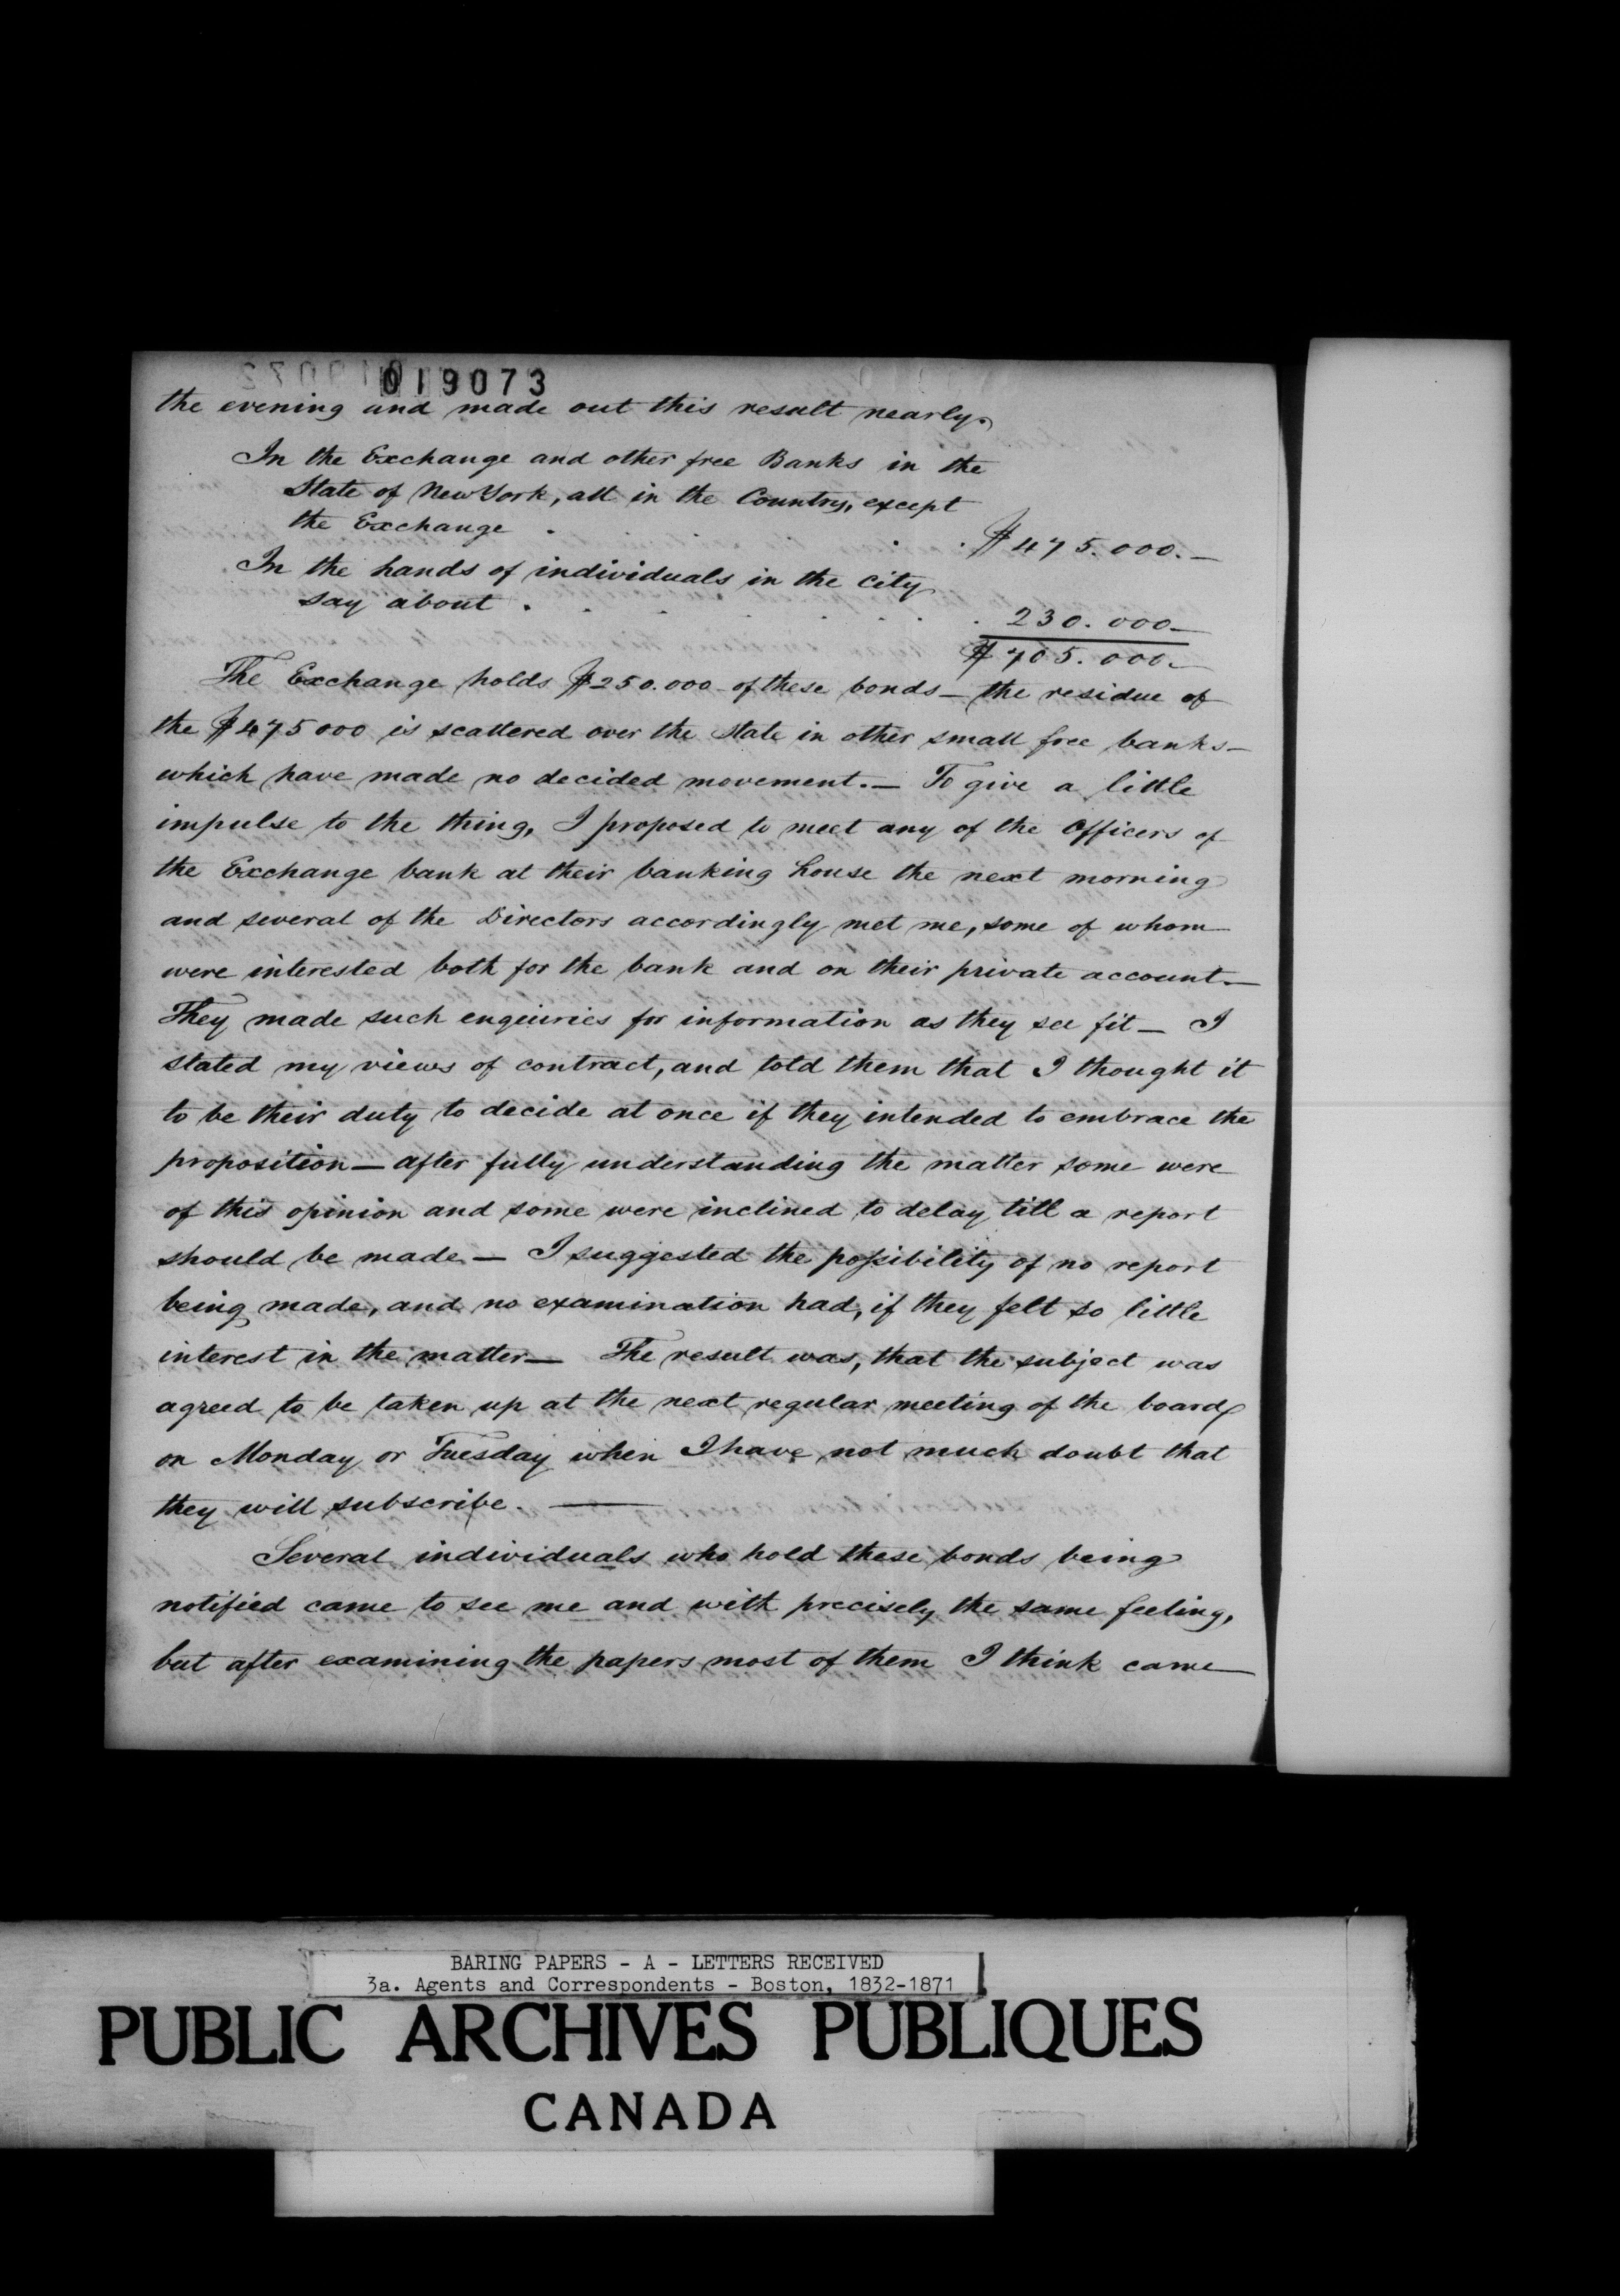 019073
the evening and made out this result nearly.
In the Exchange and other free Banks in the
State of New York, all in the Country, except
the Exchange . . . $475.000.—
In the hands of individuals in the city
say about . . . . . . . 230.000—
$705.000.—
The Exchange holds $250.000 of these bonds — the residue of
the $475000 is scattered over the State in other small free banks—
which have made no decided movement.— To give a little
impulse to the thing, I proposed to meet any of the Officers of
the Exchange bank at their banking house the next morning
and several of the Directors accordingly met me, some of whom
were interested both for the bank and on their private account.—
They made such enquiries for information as they see fit — I
stated my views of contract, and told them that I thought it
to be their duty to decide at once if they intended to embrace the
proposition — after fully understanding the matter some were
of this opinion and some were inclined to delay till a report
should be made — I suggested the possibility of no report
being made, and no examination had, if they felt so little
interest in the matter — The result was, that the subject was
agreed to be taken up at the next regular meeting of the board
on Monday or Tuesday when I have not much doubt that
they will subscribe. —
Several individuals who hold these bonds being
notified came to see me and with precisely the same feeling,
but after examining the papers most of them I think came
BARING PAPERS - A - LETTERS RECEIVED
3a. Agents and Correspondents - Boston, 1832-1871
PUBLIC ARCHIVES PUBLIQUES
CANADA